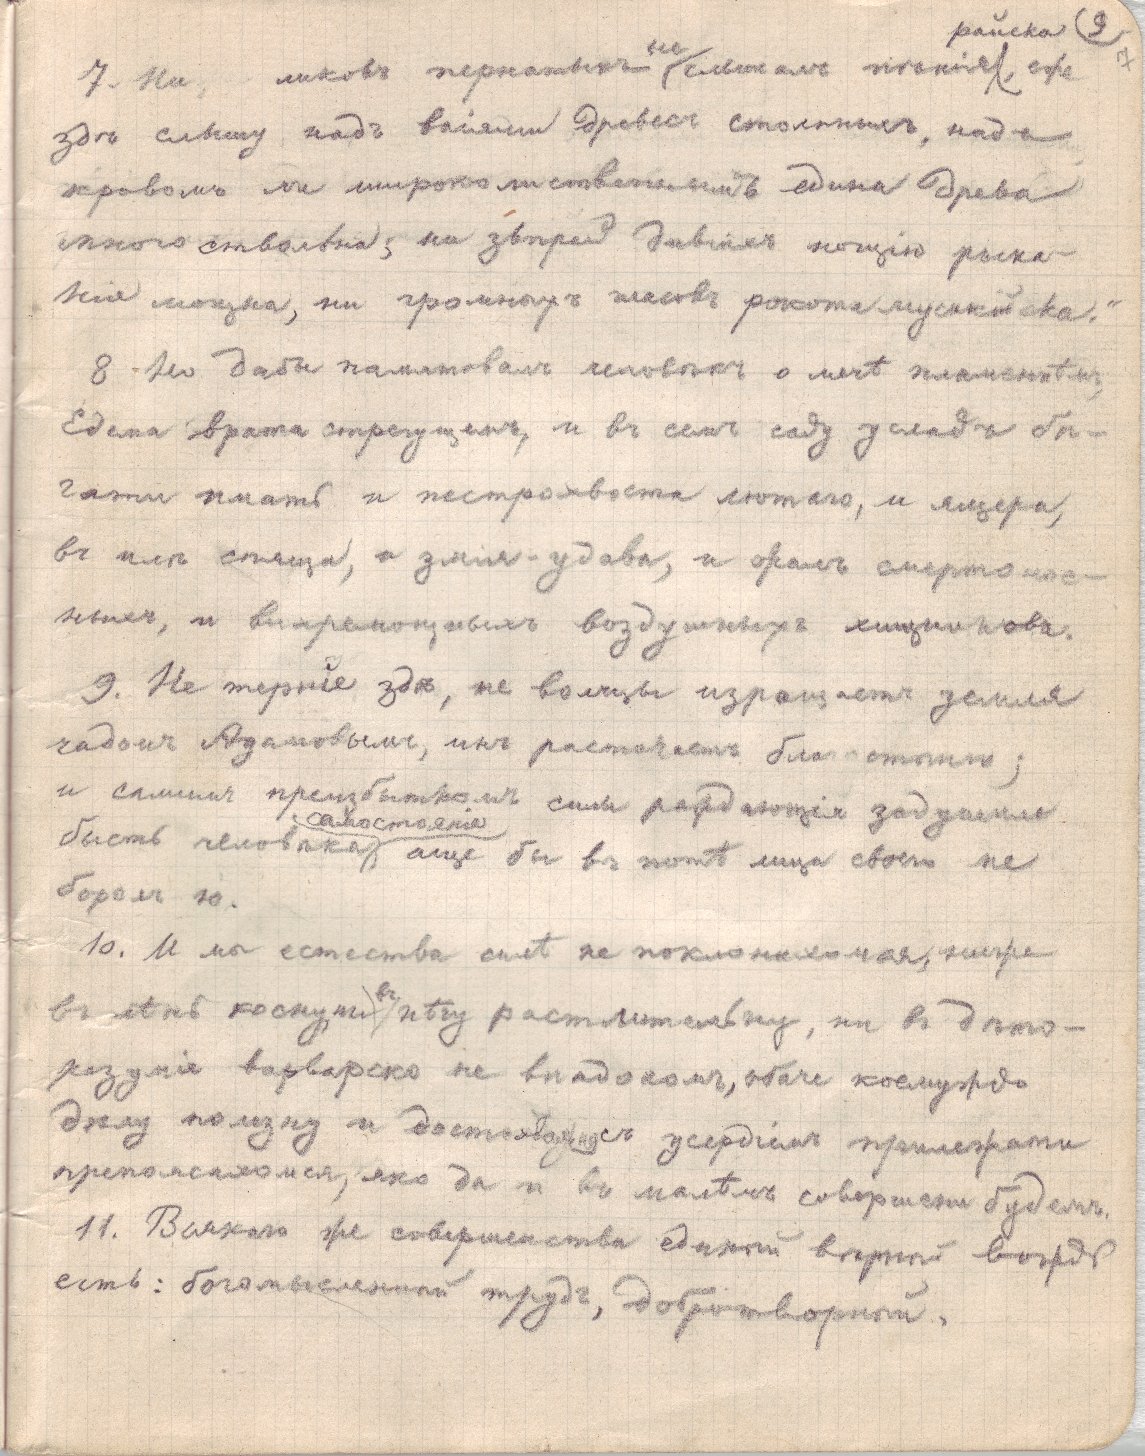 райска 9
7. Ни, ликовъ пернатыхъ не слыхалъ пѣнія, еже
здѣ слышу надъ ваіями древесъ стольныхъ, надъ
кровомъ ли широколиственнымъ едина древа
многоствольна; ни звѣрей дивіихъ нощію рыка-
нія мощна, ни громныхъ гласовъ рокота мусикійска."
8 Но дабы памятовалъ человѣкъ о мечѣ пламенѣмъ,
Едема врата стрегущемъ, и въ семъ саду усладъ бѣ-
гати имать и пестрохвоста лютаго, и ящера,
въ илѣ спяща, и змія-удава, и жалъ смертонос-
ныхъ, и вихремощныхъ воздушныхъ хищниковъ.
9. Не терніе здѣ, не волчцы изращаетъ земля
чадомъ Адамовымъ, инъ расточаетъ благостыню;
и самимъ преизбыткомъ силы раждающія задушила
самостоянія
бысть человѣка, аще бы въ потѣ лица своего не
боролъ ю.
10. И мы естества силѣ не поклонихомся, ниже
въ лѣнь коснущи въ нѣгу растлительну, ни въ дѣто-
разуміе варварско не впадохомъ, обаче коемуждо
дѣлу полезну и съ усердіемъ прилежати
препоясахомся, яко да и въ малѣмъ совершени будемъ.
11. Всякаго же совершенства единый вѣрный вождь
есть: богомысленный трудъ, добротворный.